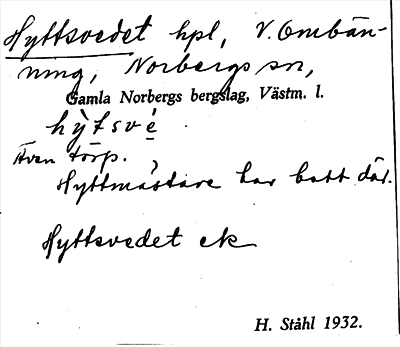 Hyttsvedet hpl, V. Ombän-
ning, Norbergs sn,
Gamla Norbergs bergslag, Västm. l.
hỳtsvé
Även torp.
Hyttmästare har bott där.
Hyttsvedet ek
H. Ståhl 1932.